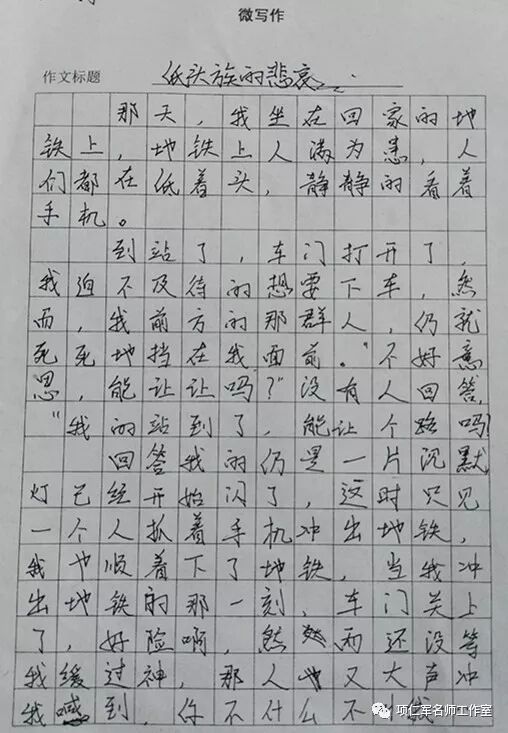 微写作
作文标题 低头族的悲哀
那天，我坐在回家的地
铁上，地铁上人满为患，人
们都在低着头，静静的看着
手机。
到站了，车门打开了，
我迫不及待的想要下车，然
而，我前方的那群人，仍就
死死地挡在我面前。"不好意
思，能让让吗？"没有人回答，
"我的站到了，能让个路吗？
回答我的仍是一片沉默，
灯已经开始闪了，这时只见
一个人抓着手机冲出地铁，
我也顺着下了地铁，当我冲
出地铁的那一刻，车门关上
了，好险啊，然而还没等
我缓过神，那人又大声冲
我喊到，你不什么不
项仁军名师工作室